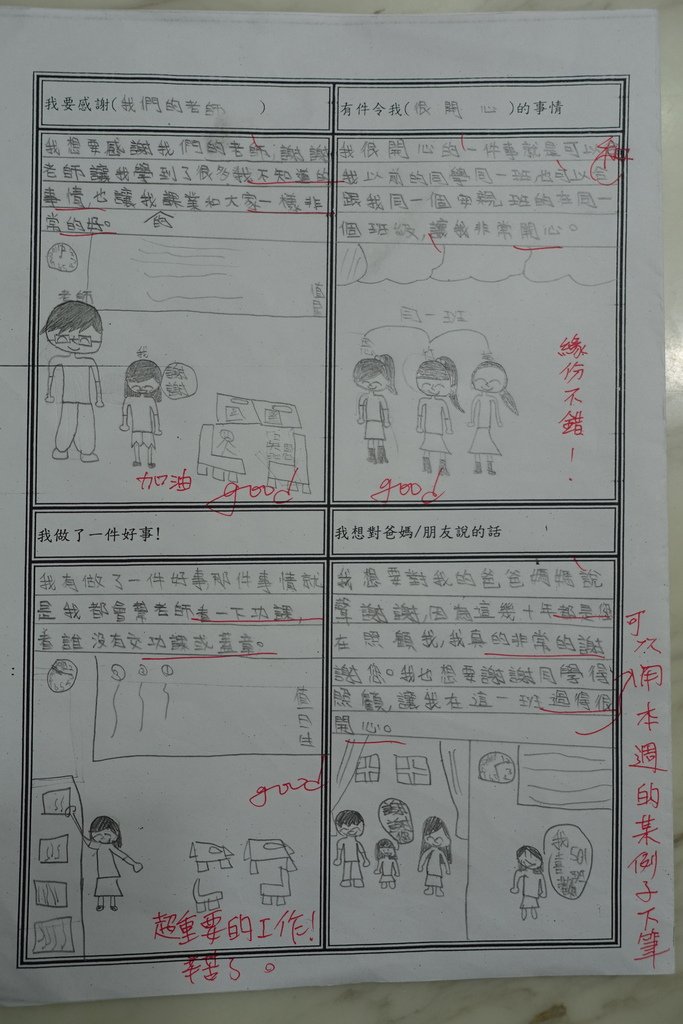 我要感謝(我們的老師)
我想要感謝我們的老師,謝謝
老師讓我學到了很多我不知道的
事情,也讓我課業和大家一樣非
常的好。
的
老師
我
謝謝
加油
good
有件令我(很開心)的事情
我很開心的一件事就是可以
和
我以前的同學同一班也可以
跟我同一個班的在同一
個班級,讓我非常開心。
同一班
緣份不錯!
good
我做了一件好事!
我有做了一件好事那件事情就
是我都會幫老師看一下功課,
看誰沒有交功課或蓋章。
③②①
值日生
good
超重要的工作!
辛苦了。
我想對爸媽/朋友說的話
我想要對我的爸爸媽媽說
聲謝謝,因為這幾十年都是您
在照顧我,我真的非常的謝
謝您。我也想要謝謝同學
照顧,讓我在這一班過得很
開心。
謝謝您
我
501
可以用本週的某例子下筆